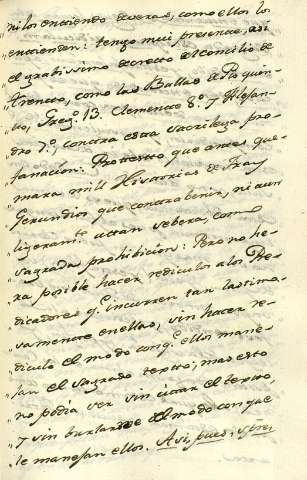 ni los entiendo deveras, como ellos los
„entienden: tengo mui presente, así
„el grabissimo decretto del concilio de
„Trento, como las Bullas de Pio quin-
„to, Greg.º 13. Clemente 8.º y Alejan-
„dro 7.º, contra esta sacrilega pro-
„fanacion: Protesto que antes que-
„mara mill Historias de Fray
„Gerundios que contrabenir, ni aun
„ligeram.te a ttan sebera, como
„sagrada prohibicion: Pero no he-
„ra posible hacer rediculos a los Pre-
„dicadores q.e incurren tan lastimo-
„samente en ellas, sin hacer re-
„diculo el modo conq.e ellos mane-
„jan el sagrado textto; mas esto
„no podia ser sin cittar el textto,
„y sin burlarse del modo con que
„le manejan ellos. Asi, pues, s.res